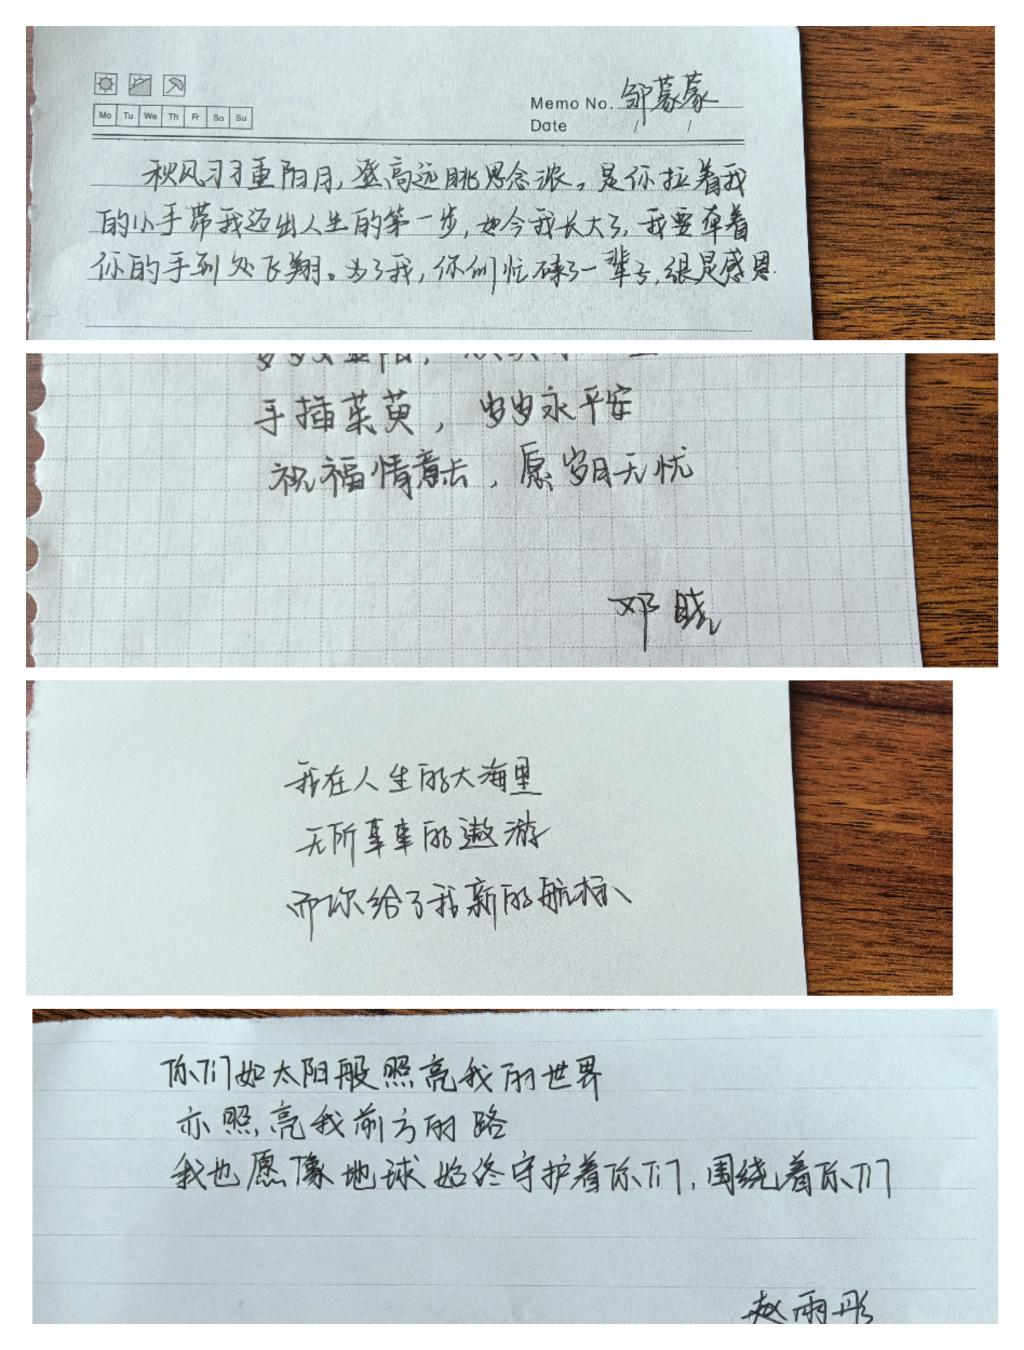 Memo No. 邹蒙蒙
Mo Tu We Th Fr Sa Su
Date / /
秋风习习重阳月,登高远眺思念浓。是你拉着我
的小手带我迈出人生的第一步,如今我长大了,我要牵着
你的手到处飞翔。为了我,你们忙碌了一辈子,很是感恩.
手插茱萸,岁岁永平安
祝福情意长,愿岁月无忧
邓晓
我在人生的大海里
无所事事的遨游
而你给了我新的航标
你们如太阳般照亮我的世界
亦照亮我前方的路
我也愿像地球始终守护着你们,围绕着你们
赵雨彤